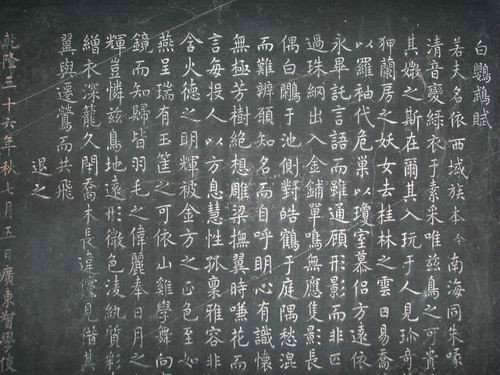 白鸚鵡賦
若夫名依西域族本今南海同朱喙
清音變綠衣于素采唯茲鳥之可貴
其媺之斯在爾其入玩于人見珍奇
狎蘭房之妖女去桂林之雲日易喬
以羅袖代危巢以瓊室慕侶方遠依
永畢託言語而雖通顧形影而非匹
過珠納出入金鋪單鳴無應隻影長
偶白鷴于池側對皓鶴于庭隅愁混
而難辨願知名而自呼明心有識懷
無極芳樹絕想雕梁撫翼時嗛花而
言每投人以方息慧性孤稟雅容非
含火德之明輝被金方之正色至如
燕呈瑞有玉筐之可依山雞學舞向
鏡而知歸皆羽毛之偉麗奉日月之
輝豈憐茲鳥地遠形微色淩紈質彩
繒衣深籠久閉喬木長違儻見借其
翼與遷鶯而共飛
退之
乾隆三十六年秋七月五日廣東